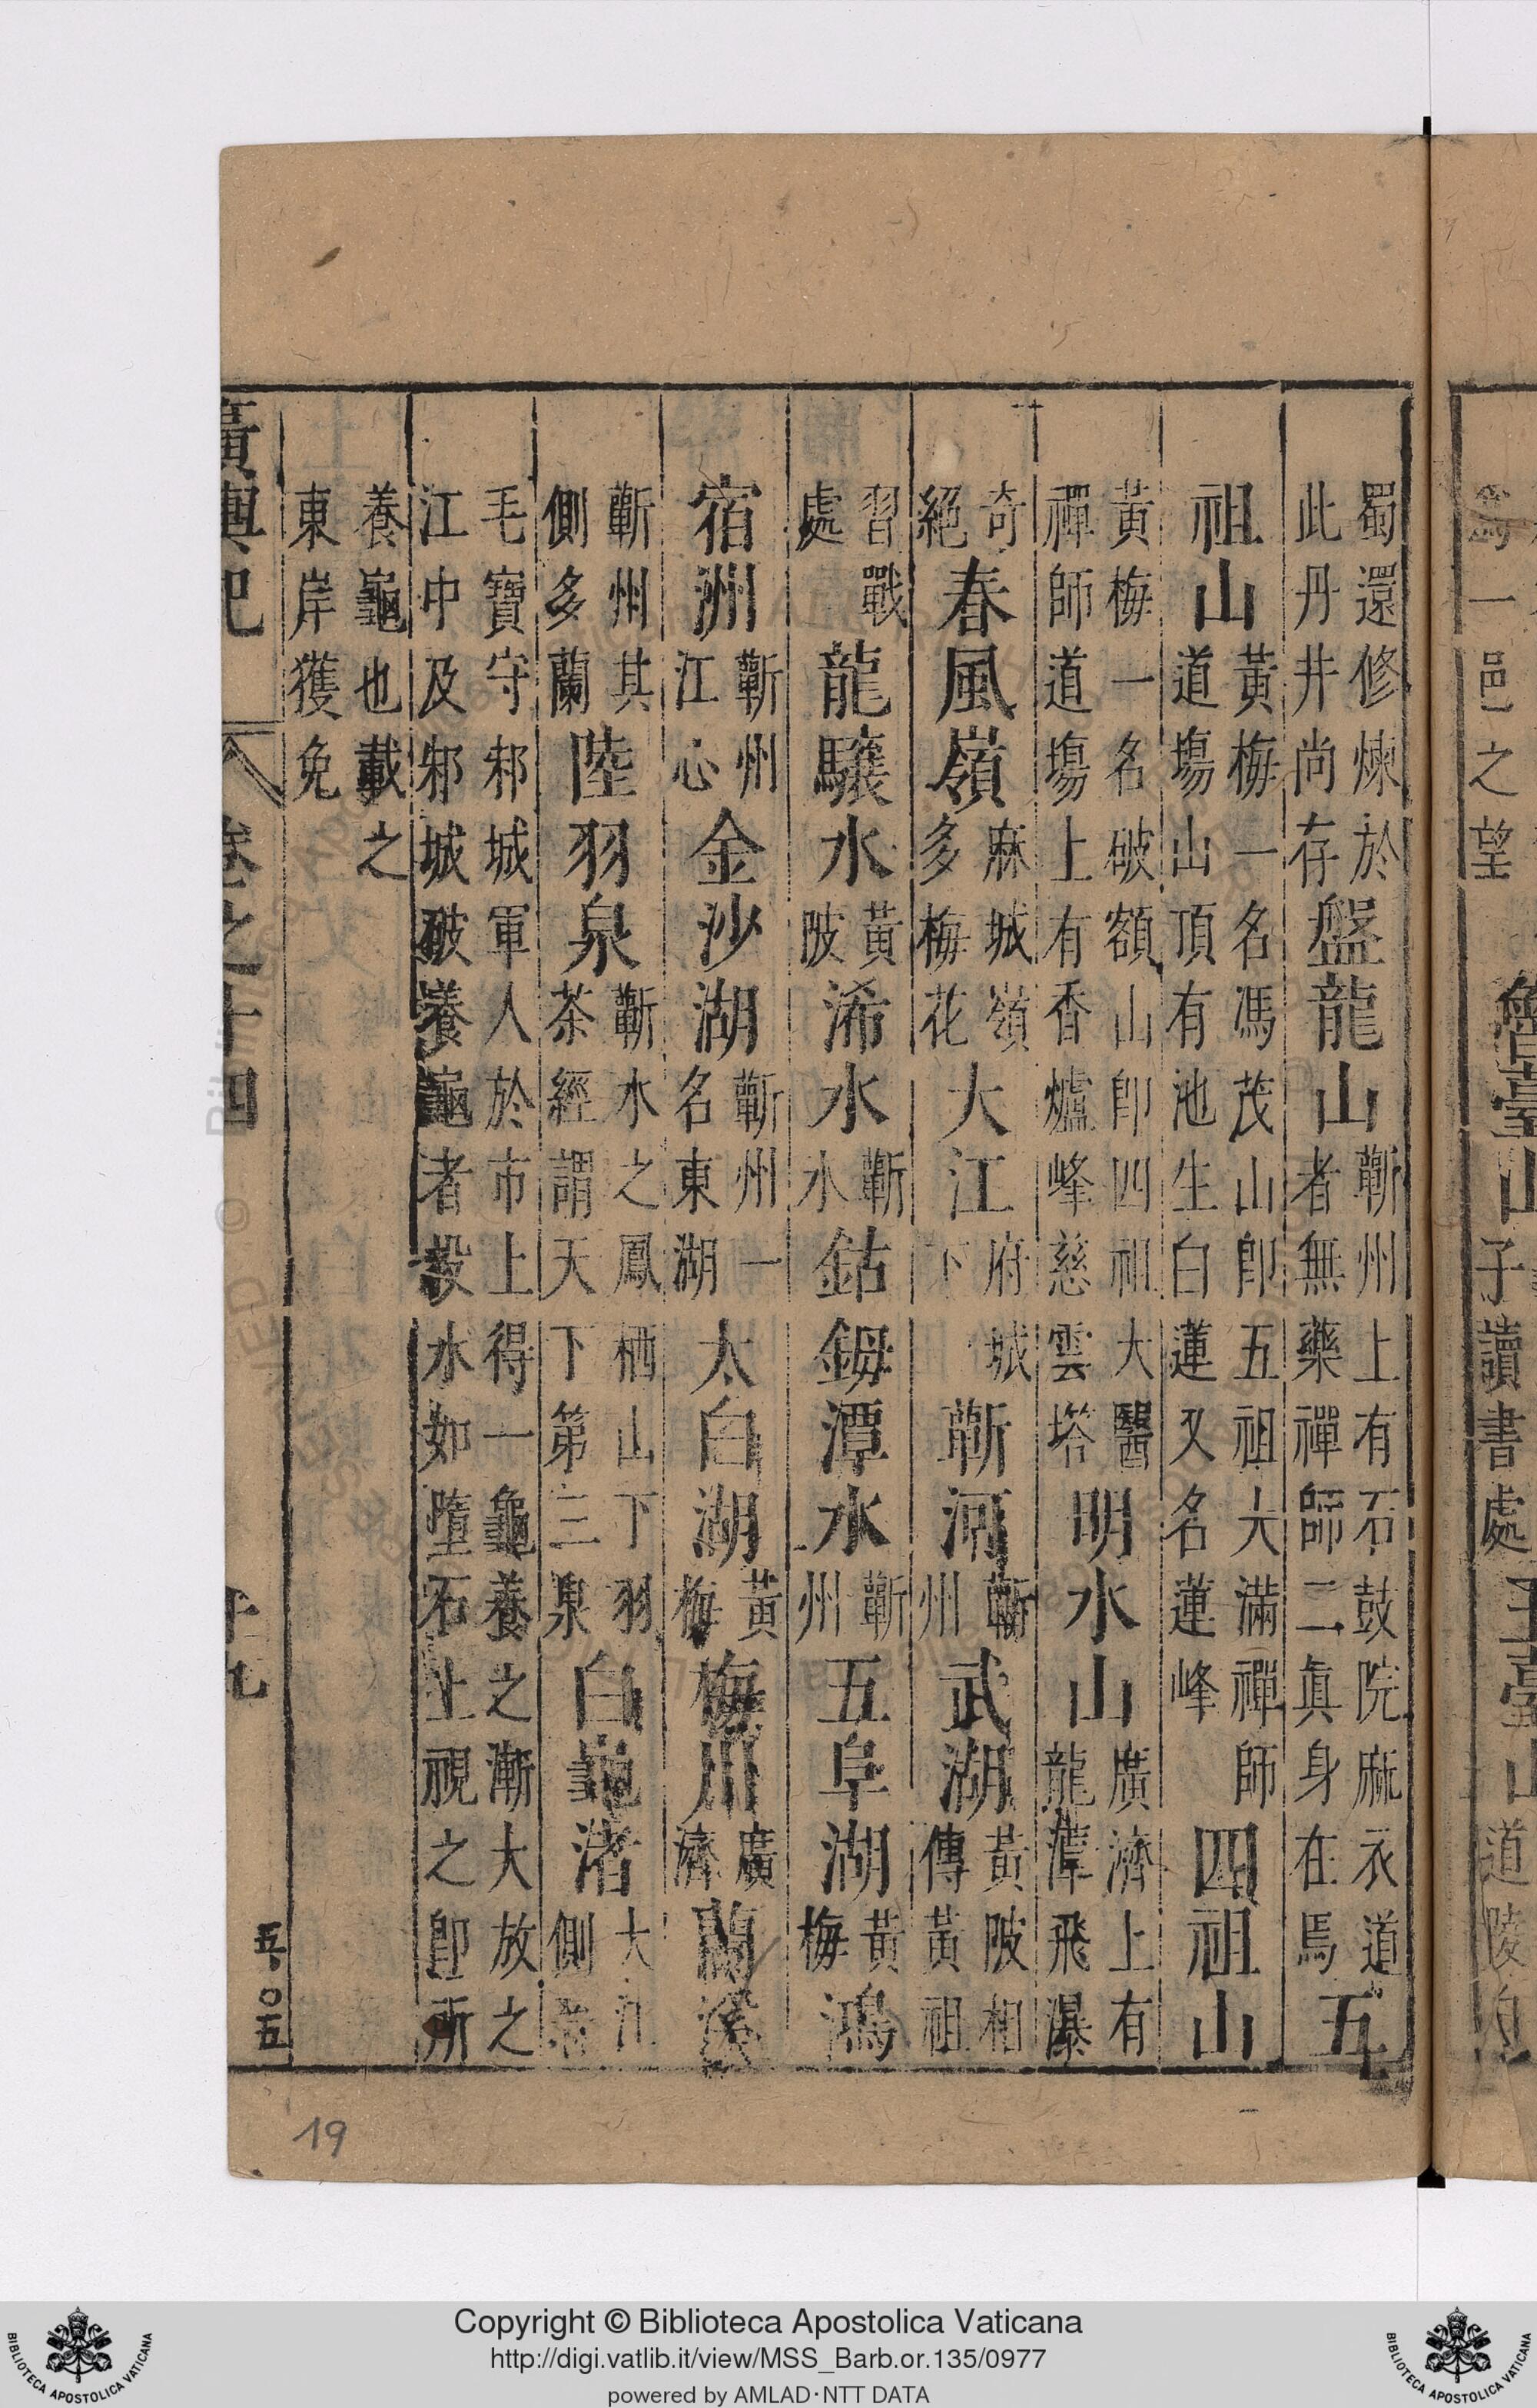 為一邑之望
子讀書處
蜀還修煉於此丹井尚存盤龍山蘄州上有石鼓院麻衣道者無藥禪師二眞身在焉五
祖山黃梅一名馮茂山卽五祖大滿禪師道塲山頂有池生白蓮又名蓮峰四祖山
黃梅一名破額山卽四祖大醫禪師道塲上有香爐峰慈雲塔明水山廣濟上有龍潭飛瀑
奇絕春風嶺麻城嶺多梅花大江府城下蘄河蘄州武湖黃陂相傳黃祖
習戰處龍驤水黃陂浠水蘄水鈷鉧潭水蘄州五阜湖黃梅鴻
宿洲蘄州江心金沙湖蘄州一名東湖太白湖黃梅梅川廣濟蘭溪
蘄州其側多蘭陸羽泉蘄水之鳳栖山下羽茶經謂天下第三泉白龜渚大江側
毛寶守邾城軍人於市上得一龜養之漸大放之江中及邾城破養龜者投水如墮石上視之卽所
養龜也載之東岸獲免
廣輿記 卷之十四 十九 五〇五
19
Copyright © Biblioteca Apostolica Vaticana
http://digi.vatlib.it/view/MSS_Barb.or.135/0977
powered by AMLAD·NTT DATA
BIBLIOTECA APOSTOLICA VATICANA
BIBLIOTECA APOSTOLICA VATICANA